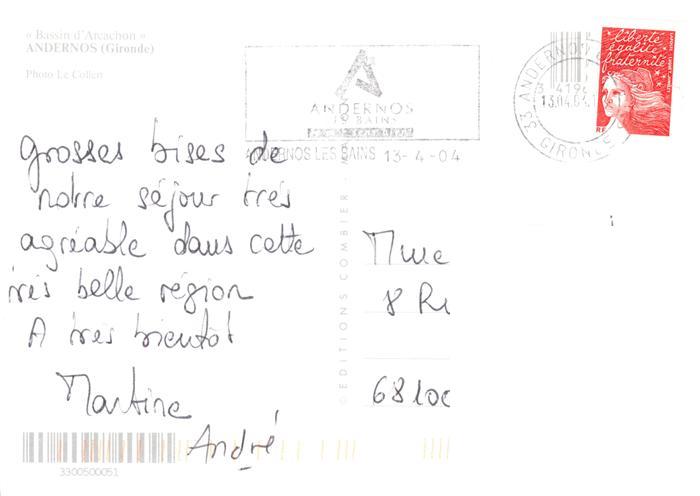 « Bassin d'Arcachon »
ANDERNOS (Gironde)
Photo Le Collen
ANDERNOS
LES BAINS
ANDERNOS LES BAINS 13-4-04
33 ANDERNOS
13.04.04
GIRONDE
liberté
égalité
fraternité
RF
grosses bises de
notre séjour très
agréable dans cette
très belle région
A très bientôt
Martine
André
©EDITIONS COMBIER
Mme
8 Ru
68100
3300500051